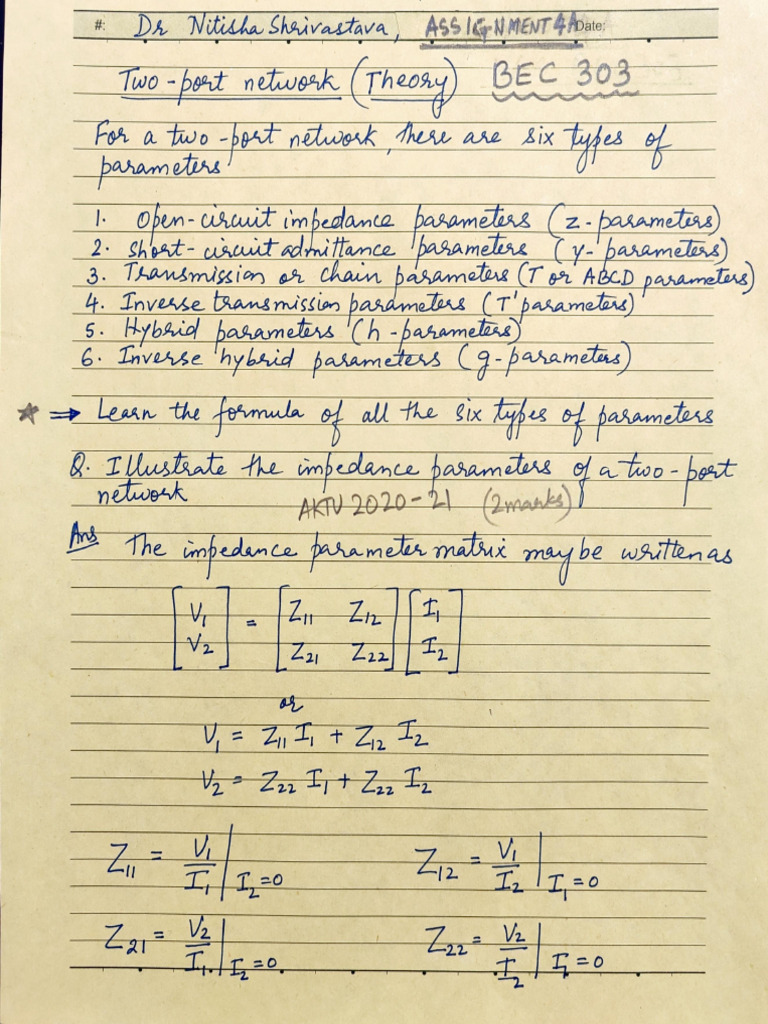 #: Dr Nitisha Shrivastava, ASSIGNMENT 4A Date:
Two-port network (Theory) BEC 303
For a two-port network, there are six types of
parameters
1. Open-circuit impedance parameters (z-parameters)
2. Short-circuit admittance parameters (y-parameters)
3. Transmission or chain parameters (T or ABCD parameters)
4. Inverse transmission parameters (T' parameters)
5. Hybrid parameters (h-parameters)
6. Inverse hybrid parameters (g-parameters)
☆ ⇒ Learn the formula of all the six types of parameters
Q. Illustrate the impedance parameters of a two-port
network AKTU 2020-21 (2 marks)
Ans The impedance parameter matrix may be written as
[V₁ V₂] = [Z₁₁ Z₁₂ Z₂₁ Z₂₂] [I₁ I₂]
or
V₁ = Z₁₁ I₁ + Z₁₂ I₂
V₂ = Z₂₂ I₁ + Z₂₂ I₂
Z₁₁ = V₁/I₁ | I₂=0 Z₁₂ = V₁/I₂ | I₁=0
Z₂₁ = V₂/I₁ | I₂=0 Z₂₂ = V₂/I₂ | I₁=0